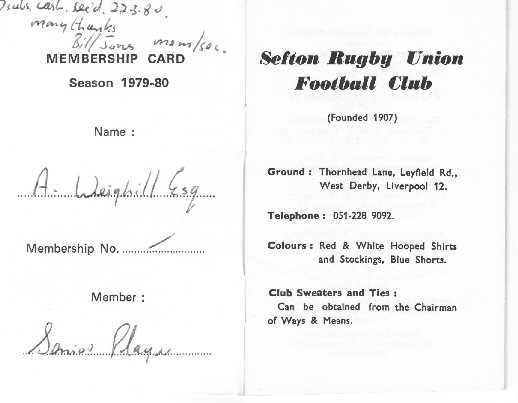 Subs. Cash. Rec'd. 22.3.80.
many thanks
Bill Jones mem/sec.
MEMBERSHIP CARD
Season 1979-80
Name :
A. Weighill Esq
Membership No.
Member :
Senior Player
Sefton Rugby Union
Football Club
(Founded 1907)
Ground : Thornhead Lane, Leyfield Rd.,
West Derby, Liverpool 12.
Telephone : 051-228 9092.
Colours : Red & White Hooped Shirts
and Stockings, Blue Shorts.
Club Sweaters and Ties :
Can be obtained from the Chairman
of Ways & Means.